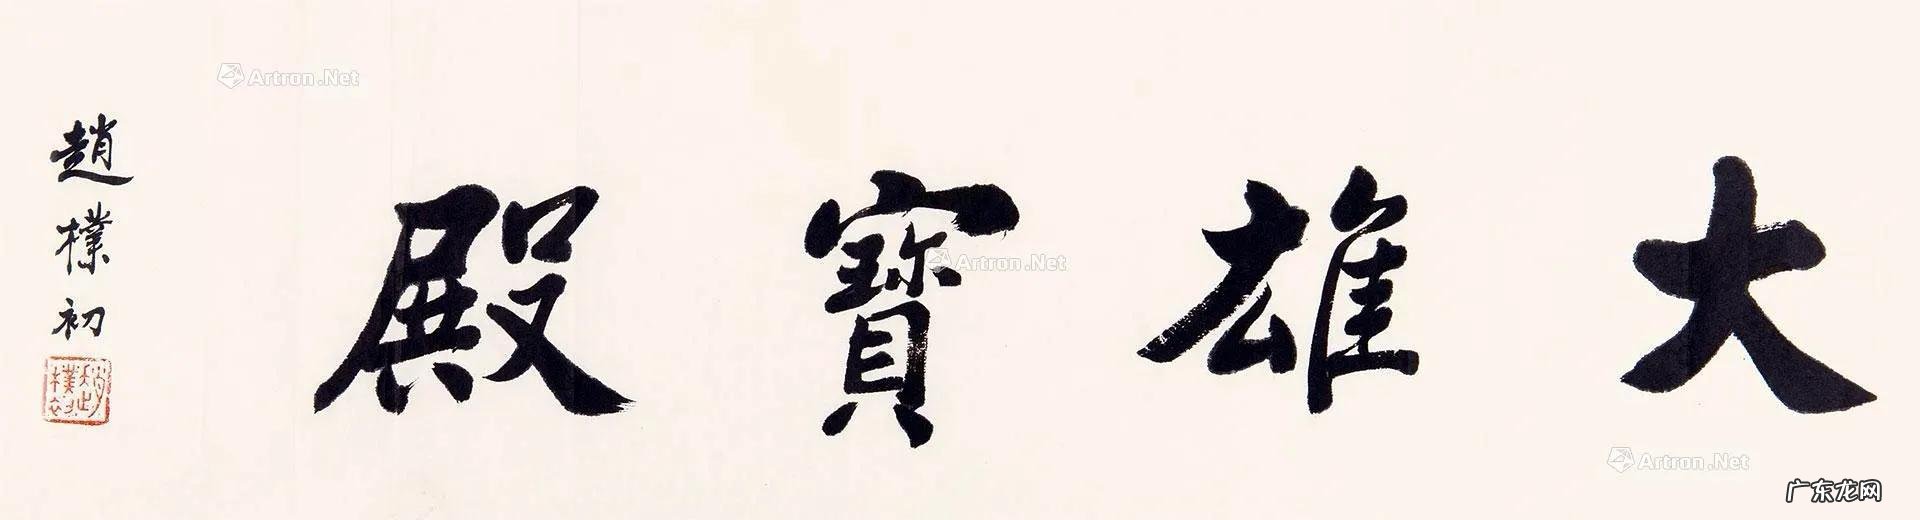 大雄寶殿
趙樸初
Artron.Net
Artron.Net
Artron.Net
广东龙网